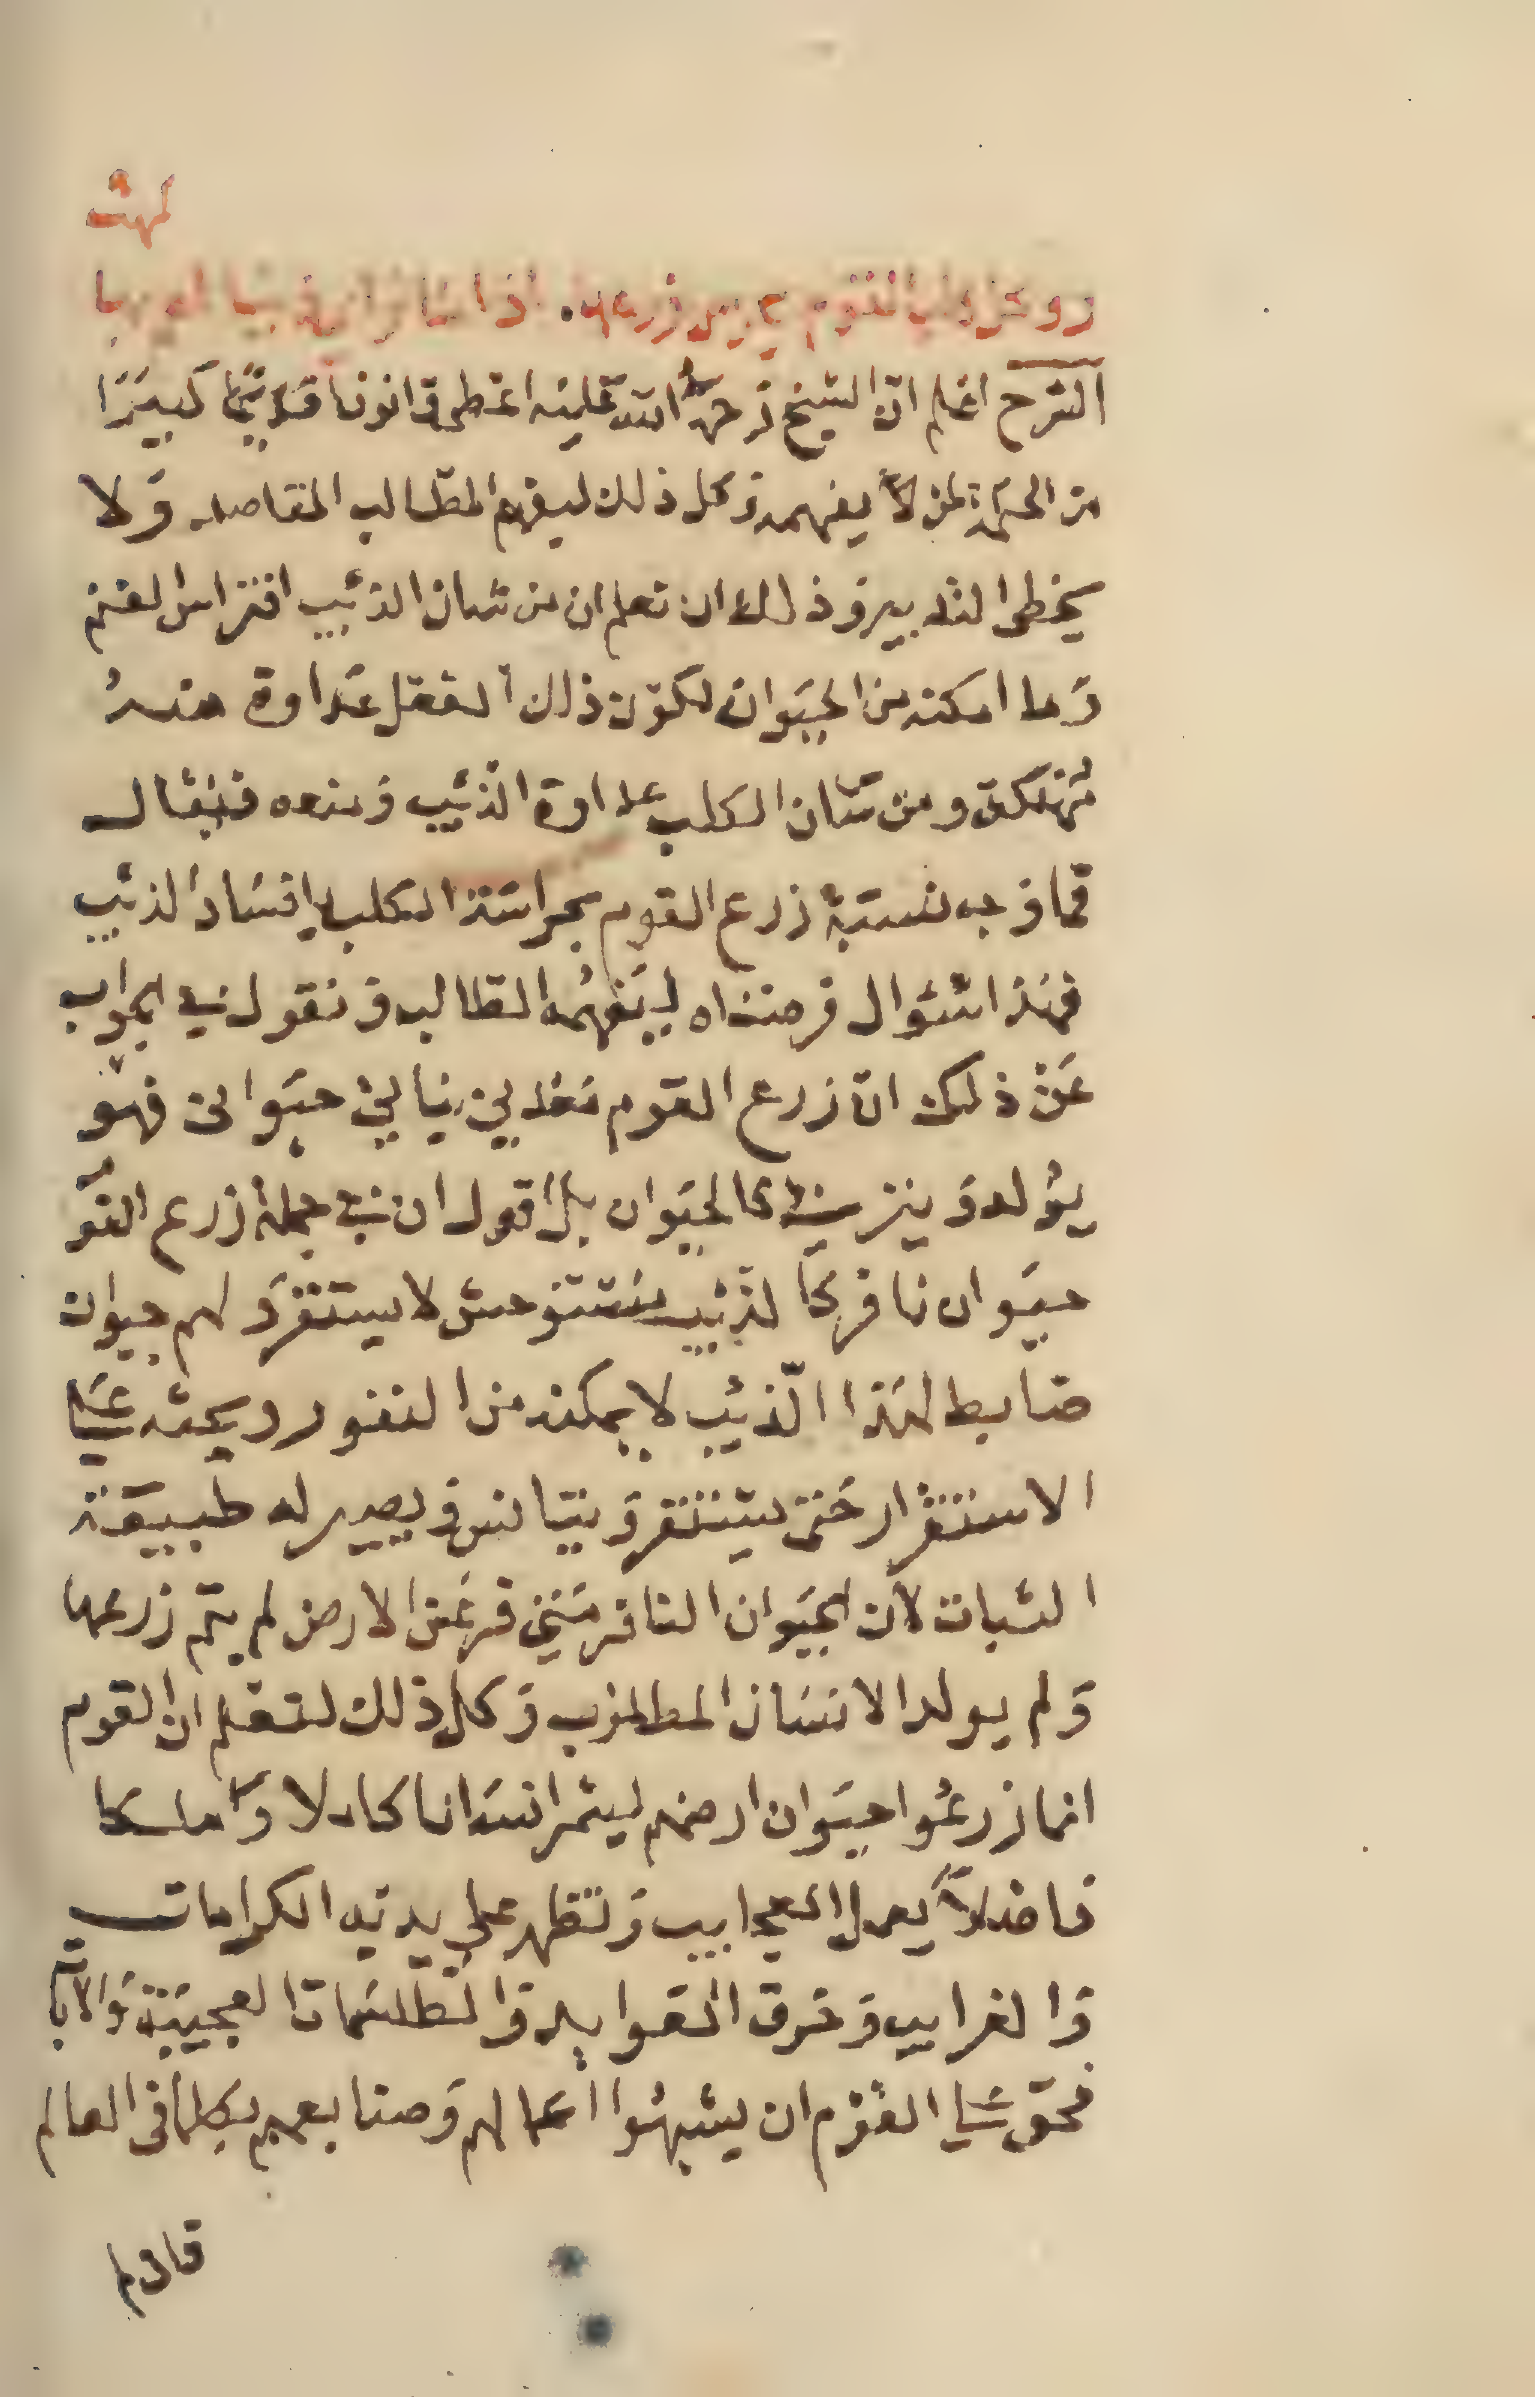 الشرح اعلم ان الشيخ رحمة الله عليه اعطى قانونا قديما كبيرا
من الحكمة لمن لا يفهمه وكل ذلك ليفهم الطالب المقاصد ولا
يخطى التدبير وذلك ان تعلم ان من شان الذئيب افتراس الغنم
وما امكنه من الحيوان لكون ذلك الفعل عداوة منه
مهلكة ومن شان الكلب عداوة الذئيب ومنعه فيقال
فما وجه نسبة زرع القوم بحراسة الكلب لافساد الذئيب
فهذا سؤال فرضناه ليفهمه الطالب ونقول في الجواب
عن ذلك ان زرع القوم معدني نباتي حيواني فهو
يولد وينزى كالحيوان بل اقول ان في جملة زرع القو
حيوان نافر كالذيب مستوحش لا يستقر لهم حيوان
ضابط لهذا الذئيب لا يمكنه من النفور ويحثه على
الاستقرار حتى يستقر ويتانس ويصير له طبيعة
الثبات لان الحيوان النافر متى فر عن الارض لم يتم زرعها
ولم يولد الانسان المطلوب وكل ذلك لتعلم ان القوم
انما زرعوا حيوان ارضهم ليثمر انسانا كاملا وملكا
فاضلا يعمل العجايب وتظهر على يديه الكرامات
والغرايب وخرق العوايد والطلسمات العجيبة والايات
فحق على القوم ان يشبهوا اعمالهم وصنايعهم بكلما في العالم